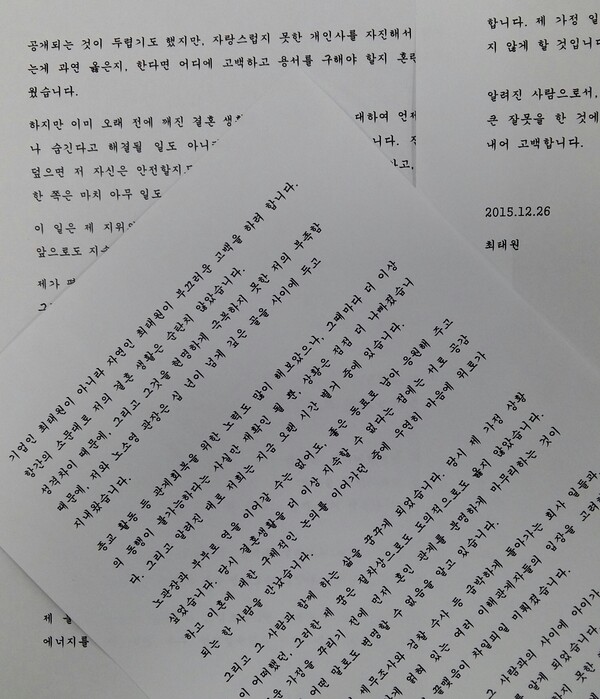 공개되는 것이 두렵기도 했지만, 자랑스럽지 못한 개인사를 자진해서
는게 과연 옳은지, 한다면 어디에 고백하고 용서를 구해야 할지 혼란
웠습니다.
하지만 이미 오래 전에 깨진 결혼 생활 대하여 언제
나 숨긴다고 해결될 일도 아니
덮으면 저 자신은 안전할지
한 쪽은 마치 아무 일도
이 일은 제 지위와
앞으로도 지속
제가
합니다. 제 가정 일
지 않게 할 것입니다
알려진 사람으로서,
큰 잘못을 한 것에
내어 고백합니다.
2015.12.26
최태원
기업인 최태원이 아니라 자연인 최태원이 부끄러운 고백을 하려 합니다.
항간의 소문대로 저의 결혼 생활은 순탄치 않았습니다.
성격차이 때문에, 그리고 그것을 현명하게 극복하지 못한 저의 부족함
때문에, 저와 노소영 관장은 십 년이 넘게 깊은 골을 사이에 두고
지내왔습니다.
종교 활동 등 관계회복을 위한 노력도 많이 해보았으나, 그때마다 더 이상
의 동행이 불가능하다는 사실만 재확인 될 뿐, 상황은 점점 더 나빠졌습니
다. 그리고 알려진 대로 저희는 지금 오랜 시간 별거 중에 있습니다.
노관장과 부부로 연을 이어갈 수는 없어도, 좋은 동료로 남아 응원해 주고
싶었습니다. 당시 결혼생활을 더 이상 지속할 수 없다는 점에는 서로 공감
하고 이혼에 대한 구체적인 논의를 이어가던 중에 우연히 마음에 위로가
되는 한 사람을 만났습니다.
그리고 그 사람과 함께 하는 삶을 꿈꾸게 되었습니다. 당시 제 가정 상황
이 어떠했건, 그러한 제 꿈은 절차상으로도 도의적으로도 옳지 않았습니다.
가정을 꾸리기 전에 먼저 혼인 관계를 분명하게 마무리하는 것이
어떤 말로도 변명할 수 없음을 알고 있습니다.
세무조사와 검찰 수사 등 급박하게 돌아가는 회사 일들과,
얽혀 있는 여러 이해관계자들의 입장을 고려하
끝맺음이 차일피일 미뤄졌습니다.
사람과의 사이에 아이가
알게 되었습니다.
제
에너지를